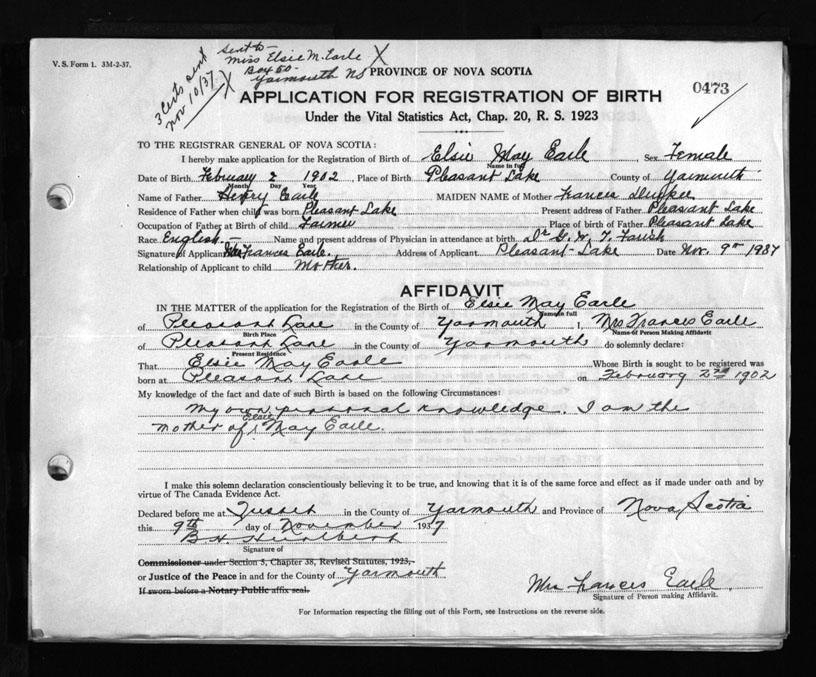 V. S. Form 1. 3M-2-37.
3 Certs sent
Nov 10/37
Sent to-
Miss Elsie M. Earle
Box 50-
Yarmouth NS
PROVINCE OF NOVA SCOTIA
0473
APPLICATION FOR REGISTRATION OF BIRTH
Under the Vital Statistics Act, Chap. 20, R. S. 1923
TO THE REGISTRAR GENERAL OF NOVA SCOTIA:
I hereby make application for the Registration of Birth of Elsie May Earle Sex Female
Name in full
Date of Birth February 2 1902, Place of Birth Pleasant Lake County of Yarmouth
Month Day Year
Name of Father Henry Earle MAIDEN NAME of Mother Frances
Residence of Father when child was born Pleasant Lake Present address of Father Pleasant Lake
Occupation of Father at Birth of child Farmer Place of birth of Father Pleasant Lake
Race English.- Name and present address of Physician in attendance at birth Dr G. W. T. Farish
Signature of Applicant Mrs Frances Earle. Address of Applicant Pleasant Lake Date Nov. 9th 1937
Relationship of Applicant to child Mother.
AFFIDAVIT
IN THE MATTER of the application for the Registration of the Birth of Elsie May Earle
Name in full
of Pleasant Lake in the County of Yarmouth I, Mrs Frances Earle
Birth Place Name of Person Making Affidavit
of Pleasant Lake in the County of Yarmouth do solemnly declare:
Present Residence
That Elsie May Earle Whose Birth is sought to be registered was
born at Pleasant Lake on February 2nd 1902
My knowledge of the fact and date of such Birth is based on the following Circumstances:
My own personal knowledge. I am the
mother of Elsie May Earle.
I make this solemn declaration conscientiously believing it to be true, and knowing that it is of the same force and effect as if made under oath and by
virtue of The Canada Evidence Act.
Declared before me at Tusket in the County of Yarmouth and Province of Nova Scotia
this 9th day of November 1937
B. H.
Signature of
Commissioner under Section 5, Chapter 38, Revised Statutes, 1923,
or Justice of the Peace in and for the County of Yarmouth
If sworn before a Notary Public affix seal.
Mrs Frances Earle.
Signature of Person making Affidavit.
For Information respecting the filling out of this Form, see Instructions on the reverse side.